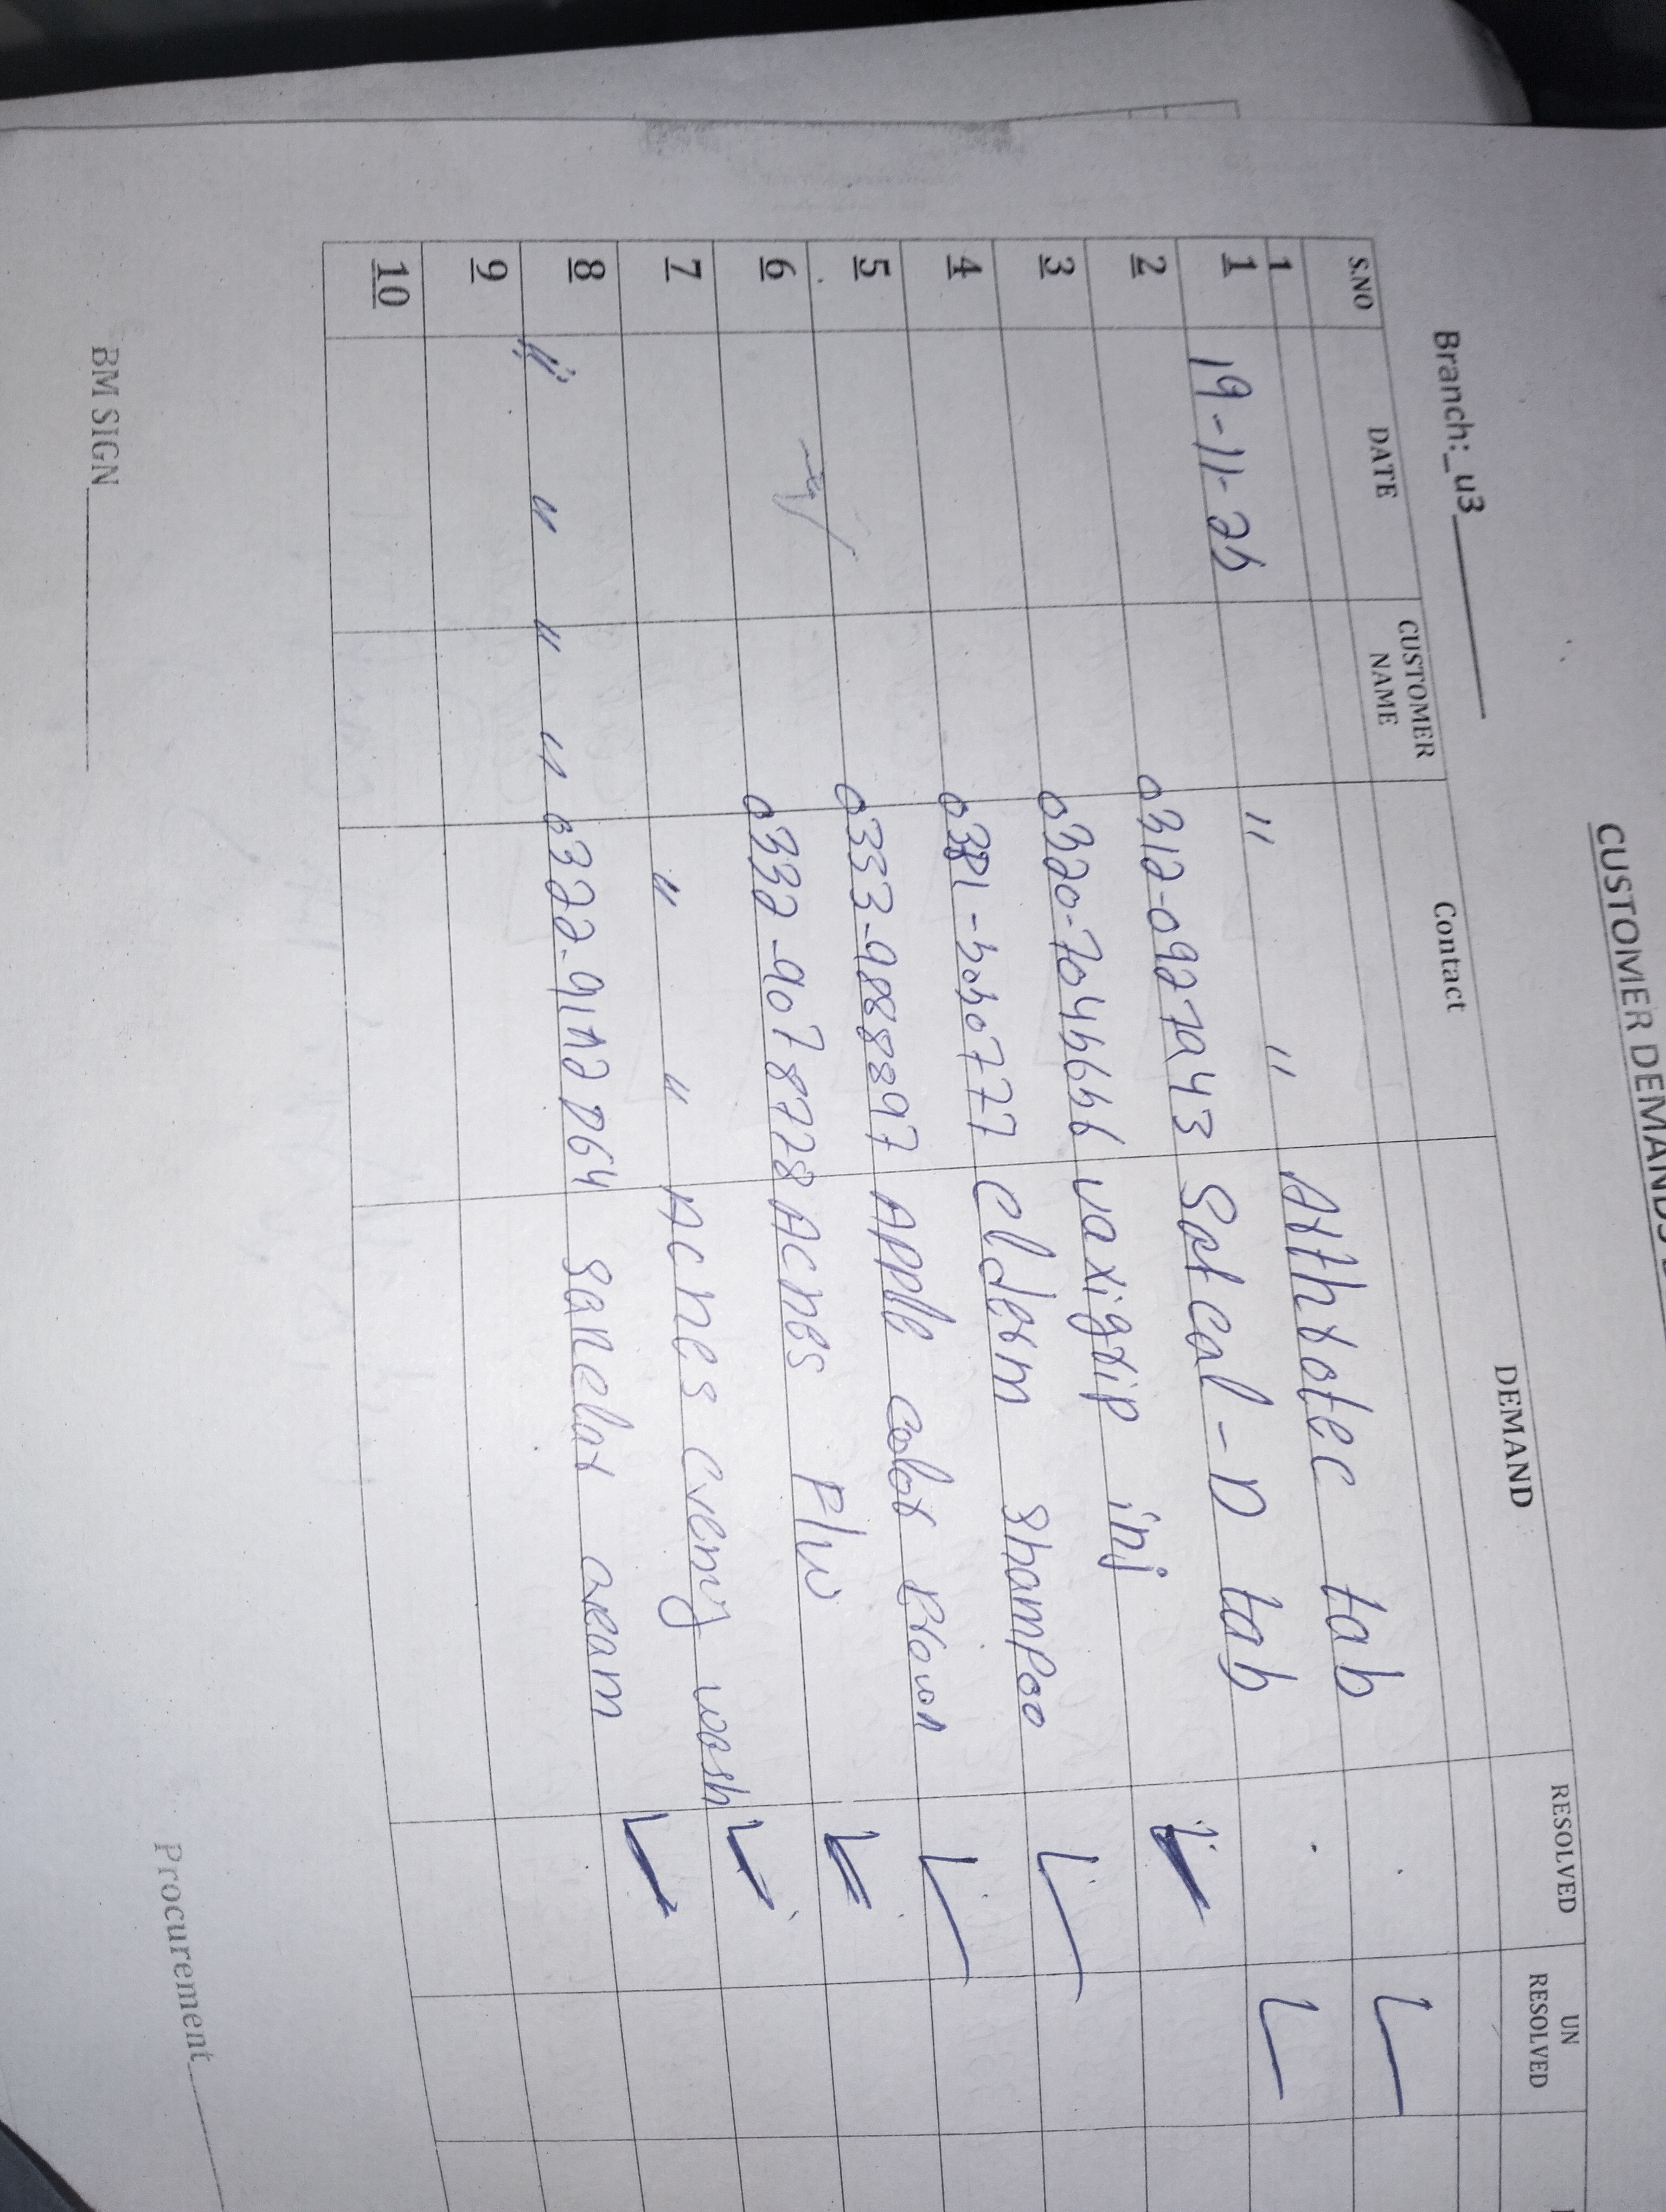 CUSTOMER DEMANDS
Branch:_u3
S.NO DATE CUSTOMER NAME Contact DEMAND RESOLVED UN RESOLVED
1
1 19-11-25 " " Arthrotec tab
2 0312-0927943 Sofcal-D tab
3 0320-7045666 vaxigrip inj
4 -5050777 elderm shampoo
5 0333-9888897 Apple color Brown
6 0332-9078728 Acnes Plus
7 " " Acnes cremy wash
8 " " " " cream
9
10
BM SIGN
Procurement